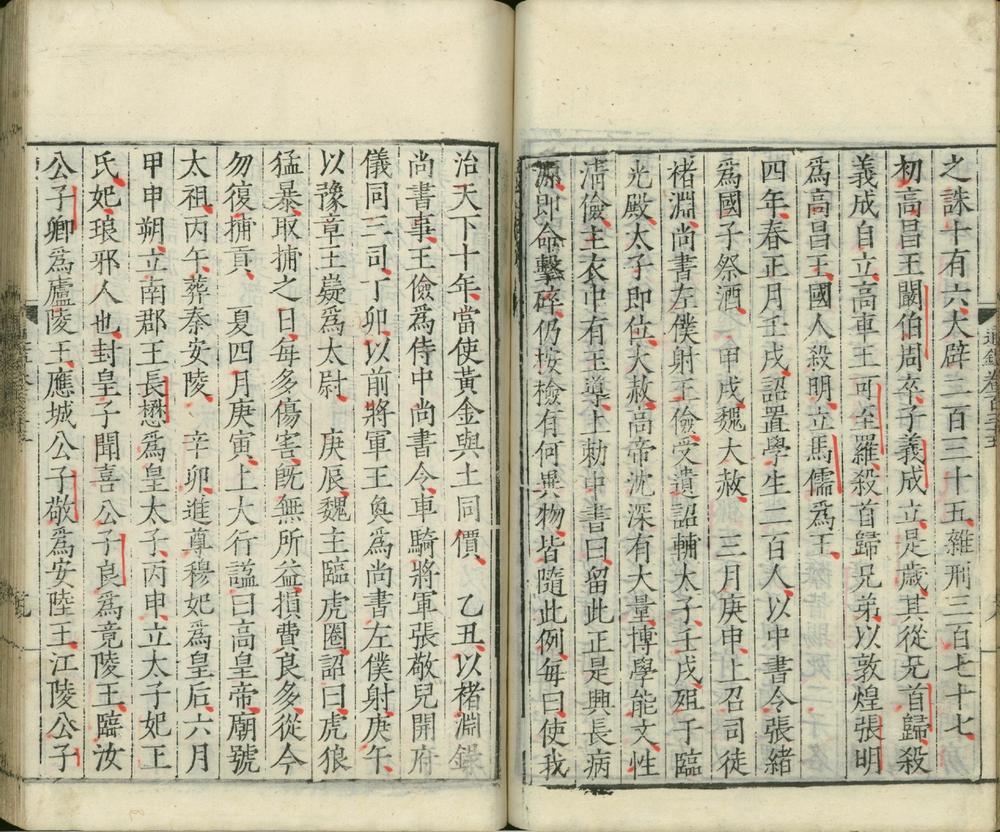 之誅十有六大辟二百三十五雜刑三百七十七
初高昌王闞伯周卒子義成立是歲其從兄首歸殺
義成自立高車王可至羅殺首歸兄弟以敦煌張明
爲高昌王國人殺明立馬儒爲王
四年春正月壬戌詔置學生二百人以中書令張緒
爲國子祭酒 甲戌魏大赦 三月庚申上召司徒
褚淵尚書左僕射王儉受遺詔輔太子壬戌殂于臨
光殿太子即位大赦高帝沈深有大量博學能文性
淸儉主衣中有玉導上勅中書曰留此正是興長病
源即命擊碎仍按檢有何異物皆隨此例每曰使我
治天下十年當使黃金與土同價 乙丑以褚淵錄
尚書事王儉爲侍中尚書令車騎將軍張敬兒開府
儀同三司丁卯以前將軍王奐爲尚書左僕射庚午
以豫章王嶷爲太尉 庚辰魏主臨虎圈詔曰虎狼
猛暴取捕之日每多傷害旣無所益損費良多從今
勿復捕貢 夏四月庚寅上大行謚曰高皇帝廟號
太祖丙午葬泰安陵 辛卯進尊穆妃爲皇后六月
甲申朔立南郡王長懋爲皇太子丙申立太子妃王
氏妃琅邪人也封皇子聞喜公子良爲竟陵王臨汝
公子卿爲廬陵王應城公子敬爲安陸王江陵公子